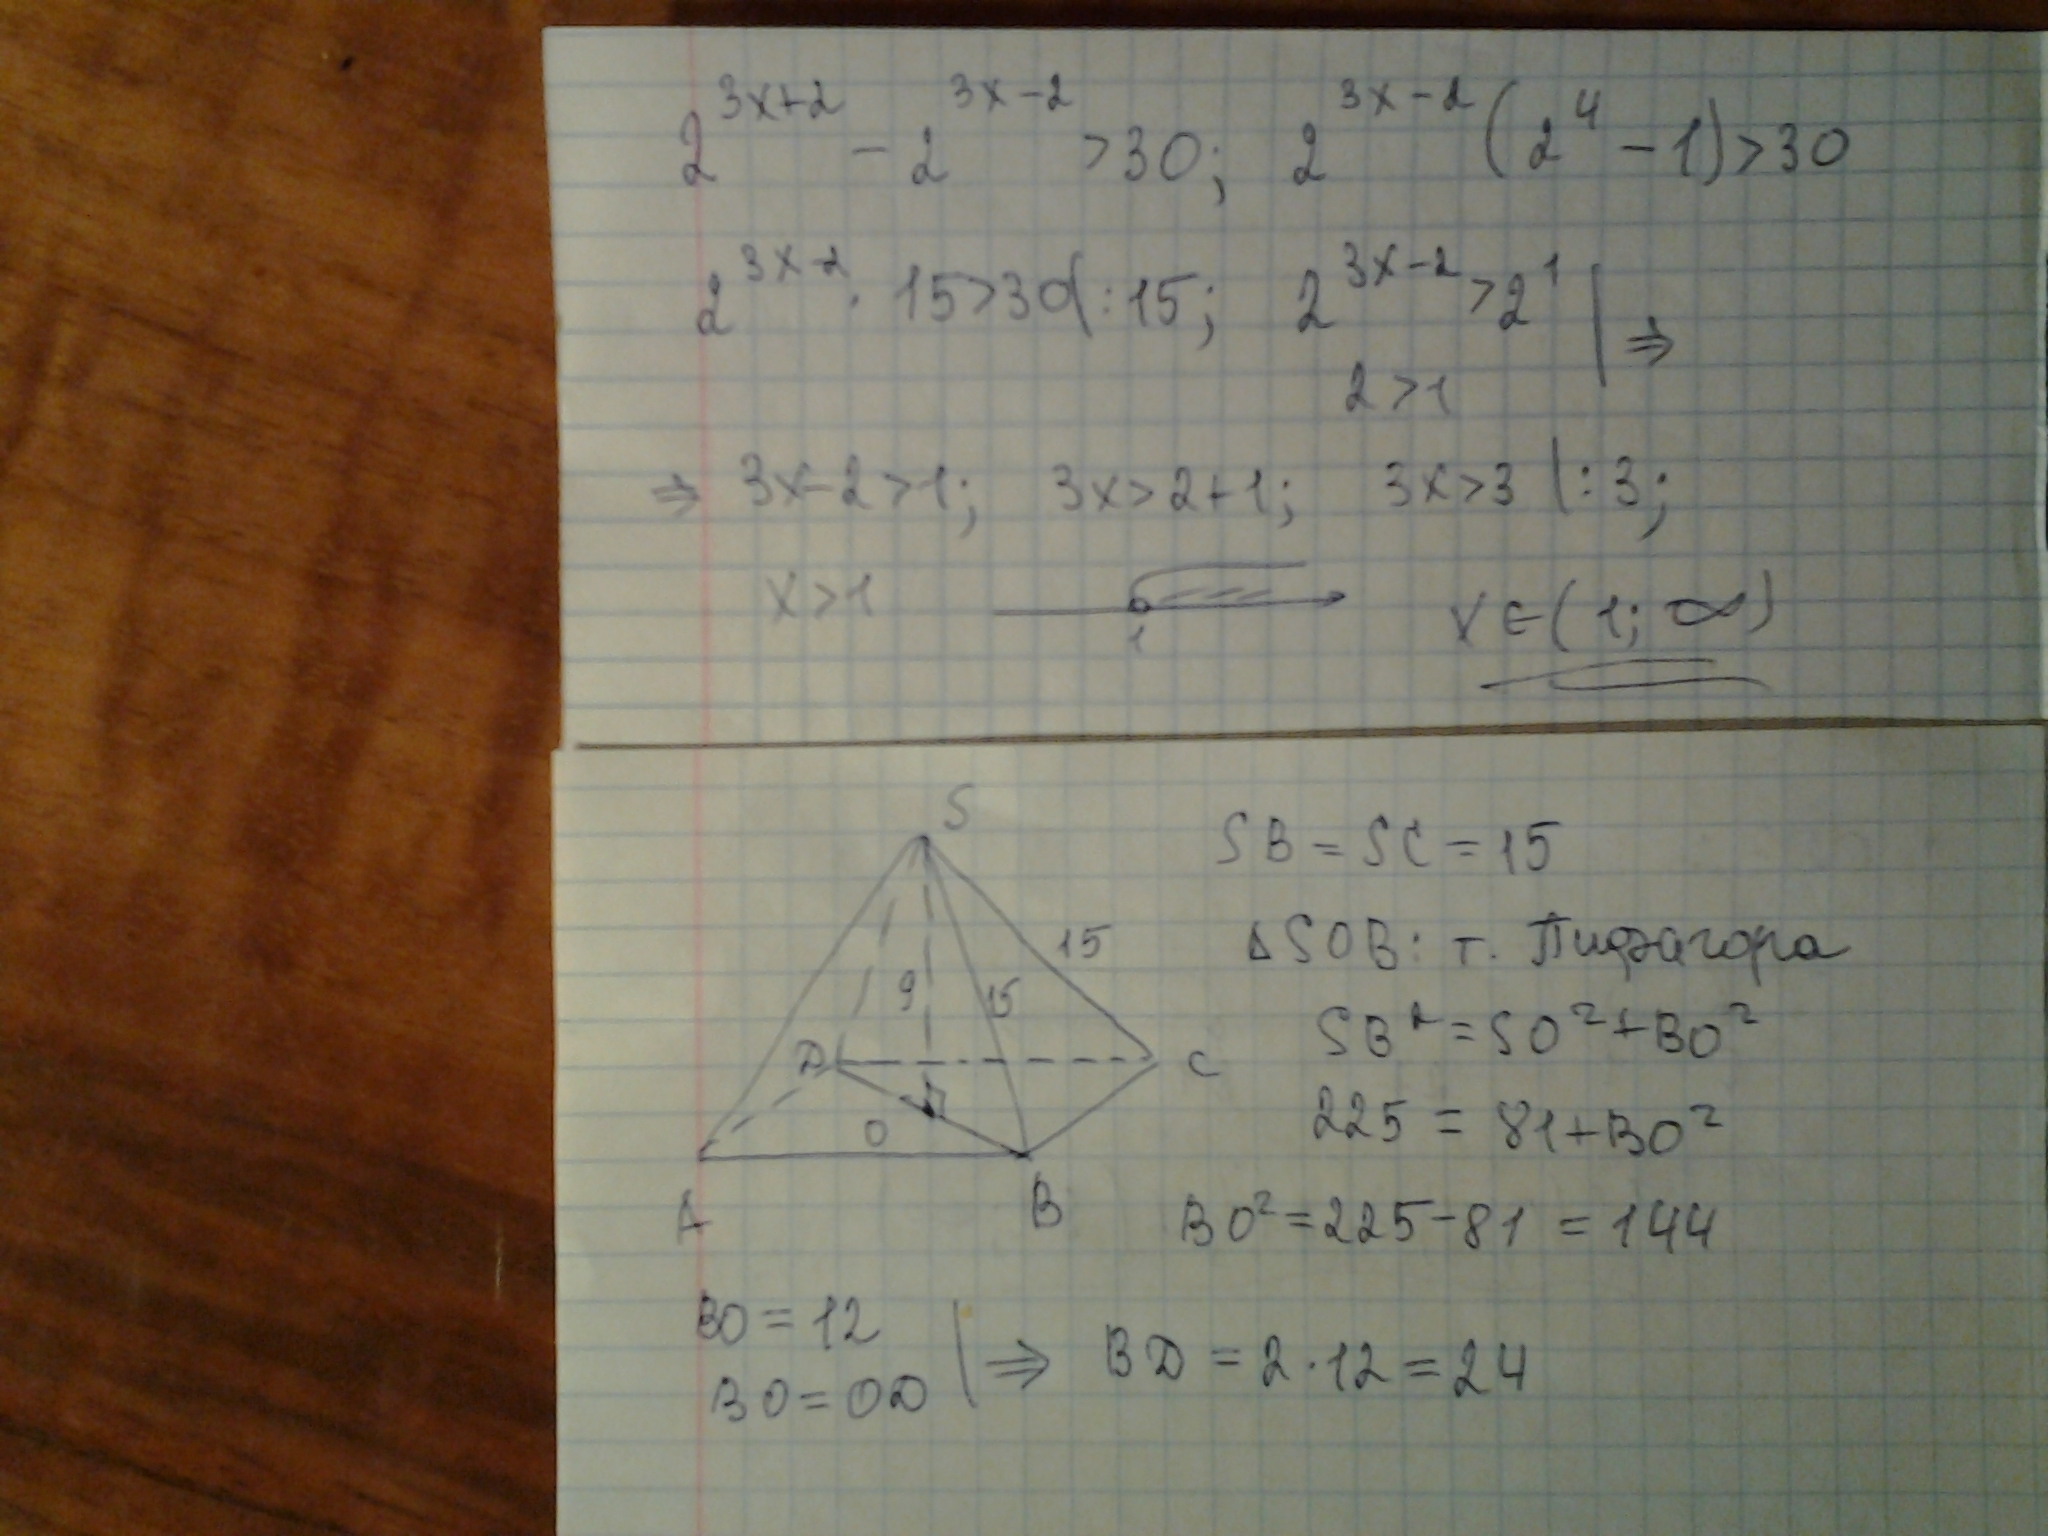 2^{3x+2} - 2^{3x-2} >30; 2^{3x-2} (2^4 -1)>30
2^{3x-2} · 15>30|:15; 2^{3x-2} >2^1 | ⇒
2>1
⇒ 3x-2>1; 3x>2+1; 3x>3 |:3;
x>1 1 x∈(1; ∞)
S
SB = SC = 15
15
ΔSOB: т. Пифагора
9 15
SB² = SO² + BO²
D C
225 = 81+BO²
O
A B
BO² = 225-81 = 144
BO = 12
BO = OD | ⇒ BD = 2·12 = 24